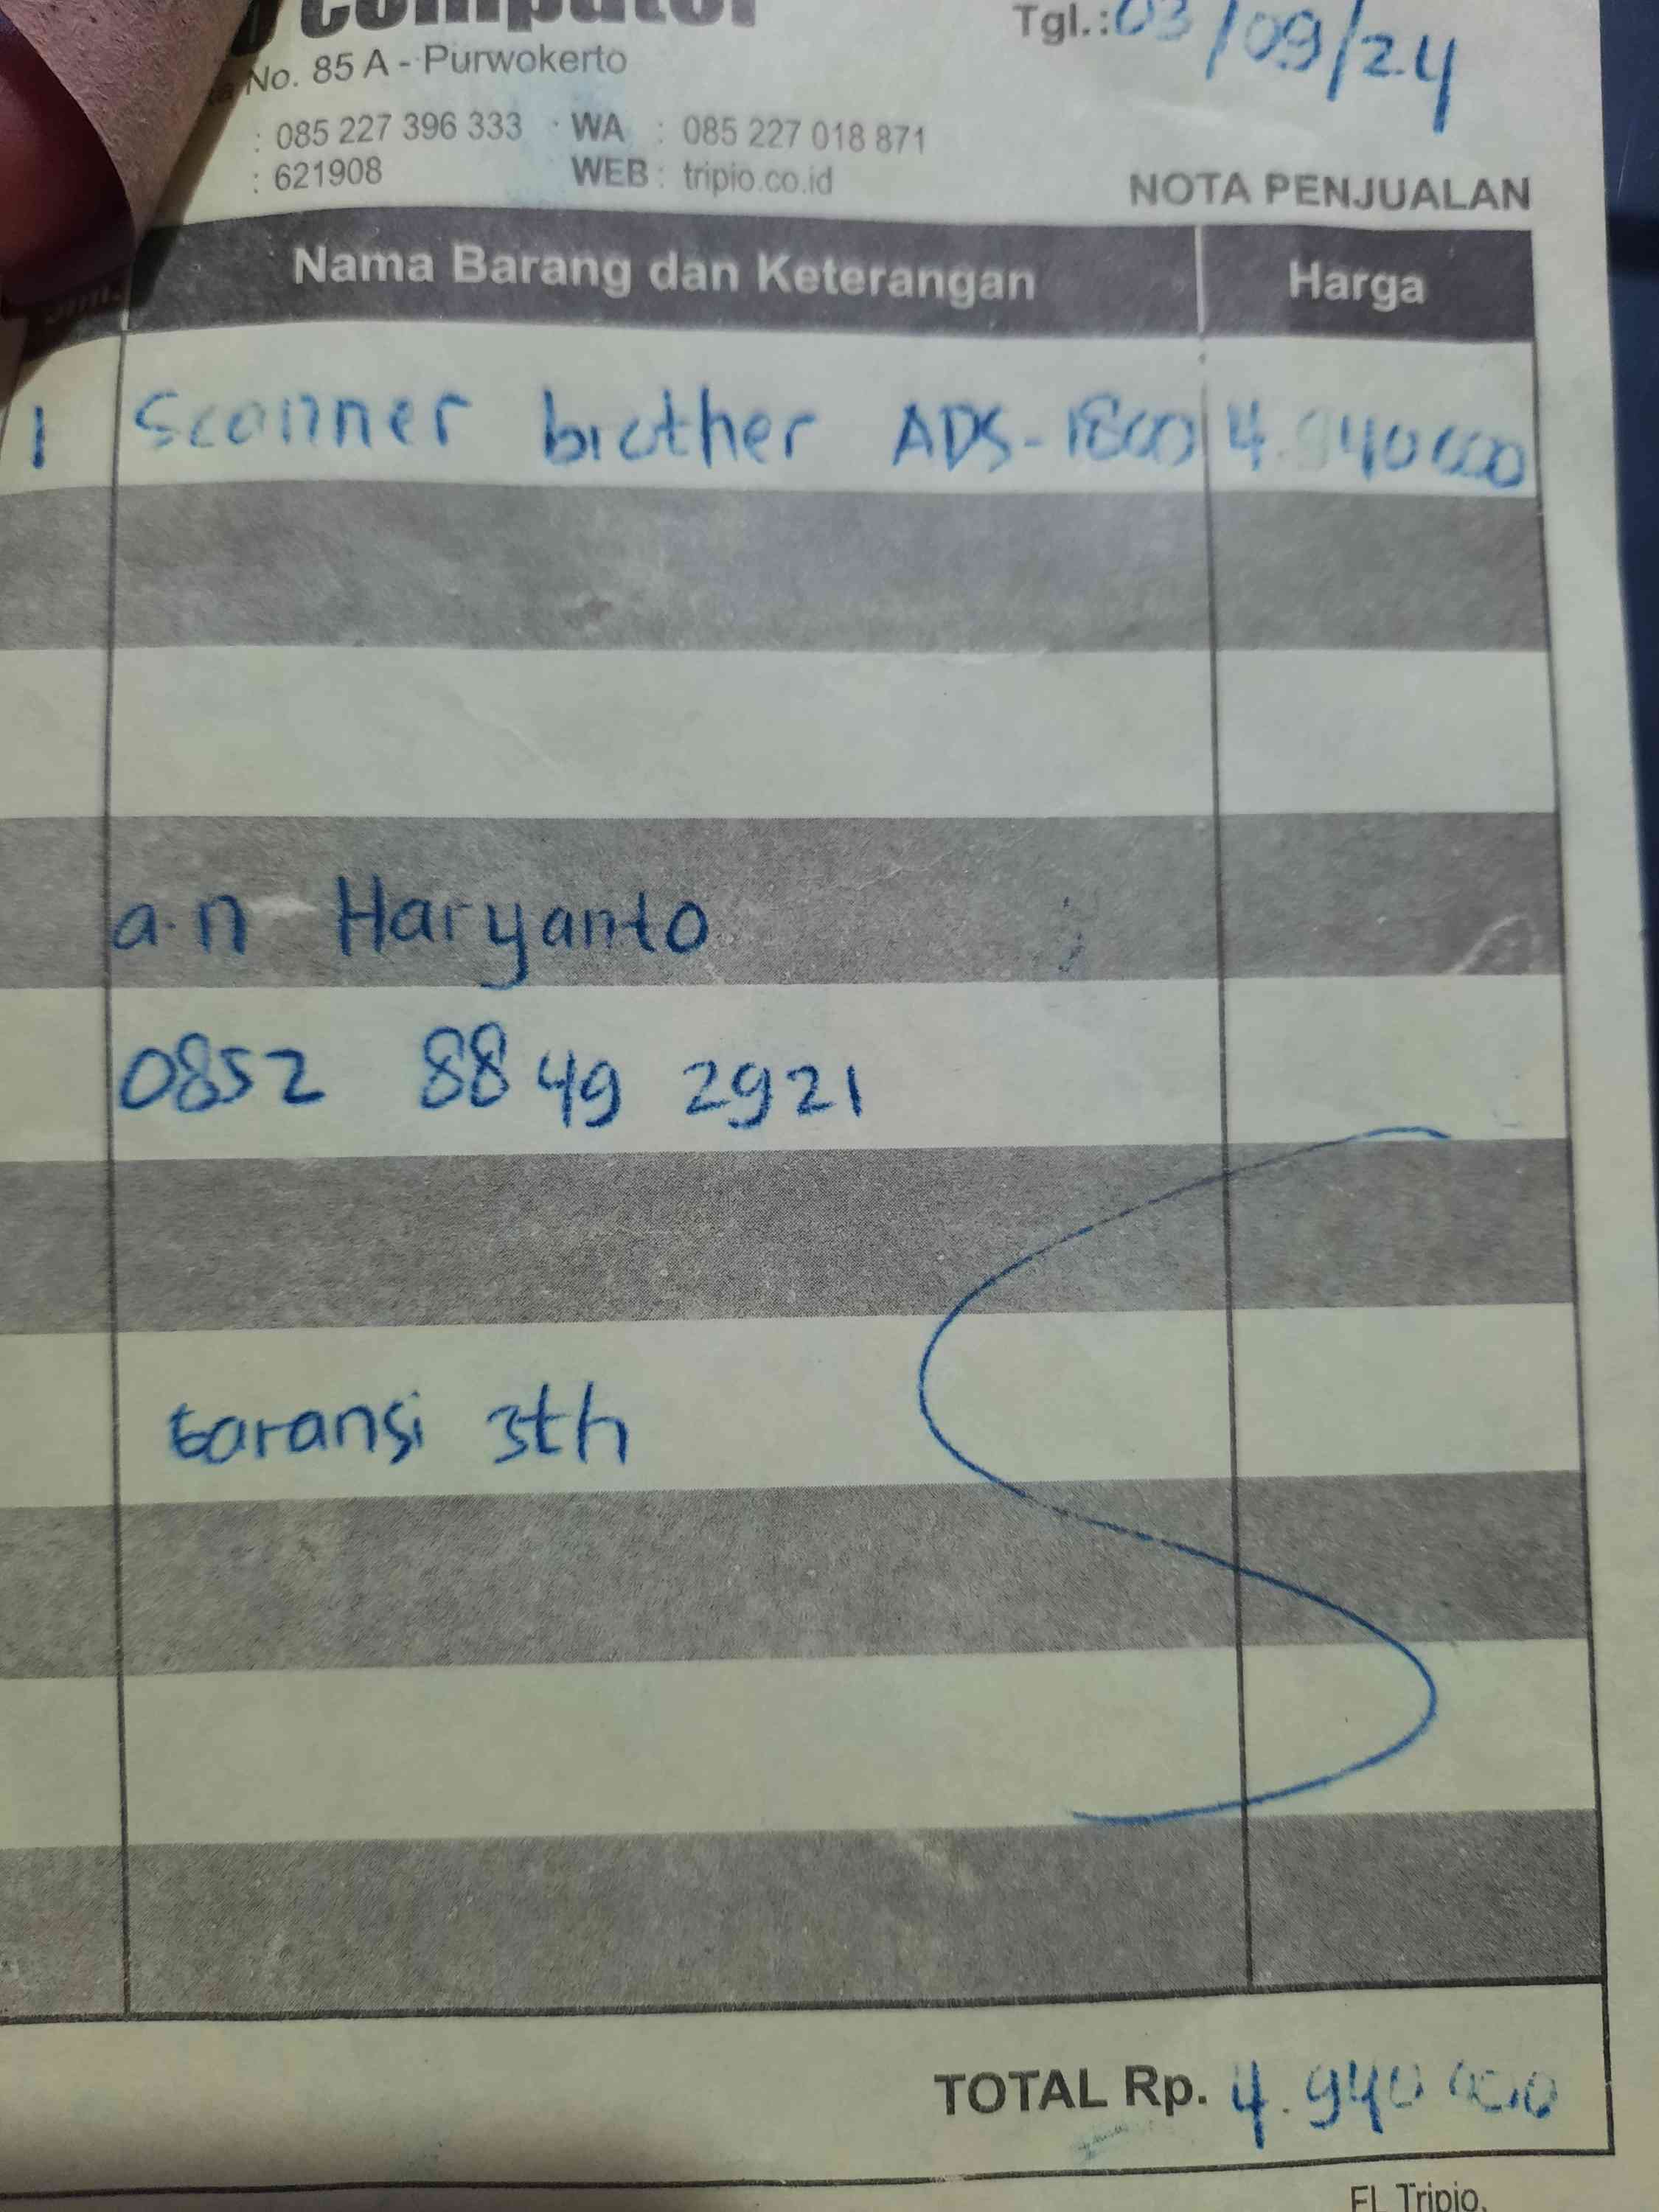 Computer
Tgl.: 03/09/24
No. 85 A - Purwokerto
: 085 227 396 333 WA : 085 227 018 871
: 621908 WEB : tripio.co.id
NOTA PENJUALAN
Nama Barang dan Keterangan Harga
1 Scanner brother ADS-1800 4.940000
a.n Haryanto
0852 8849 2921
Garansi 3th
TOTAL Rp. 4.940 000
FL Tripio.